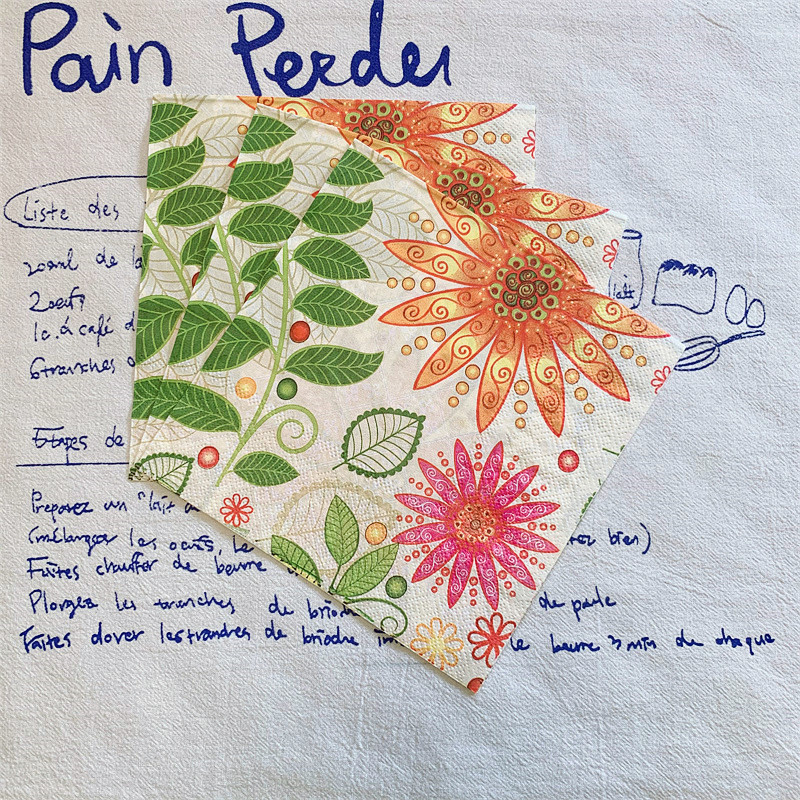 Pain Perdu
Liste des
200ml de la
2 oeufs
1c. à café d
6 tranches d
lait
Etapes de
Préparez un "lait
(mélangez les oeufs, le bien)
Faites chauffer de beurre
Plongez les tranches de brioche de poule
Faites dorer les tranches de brioche le beurre 3 min de chaque